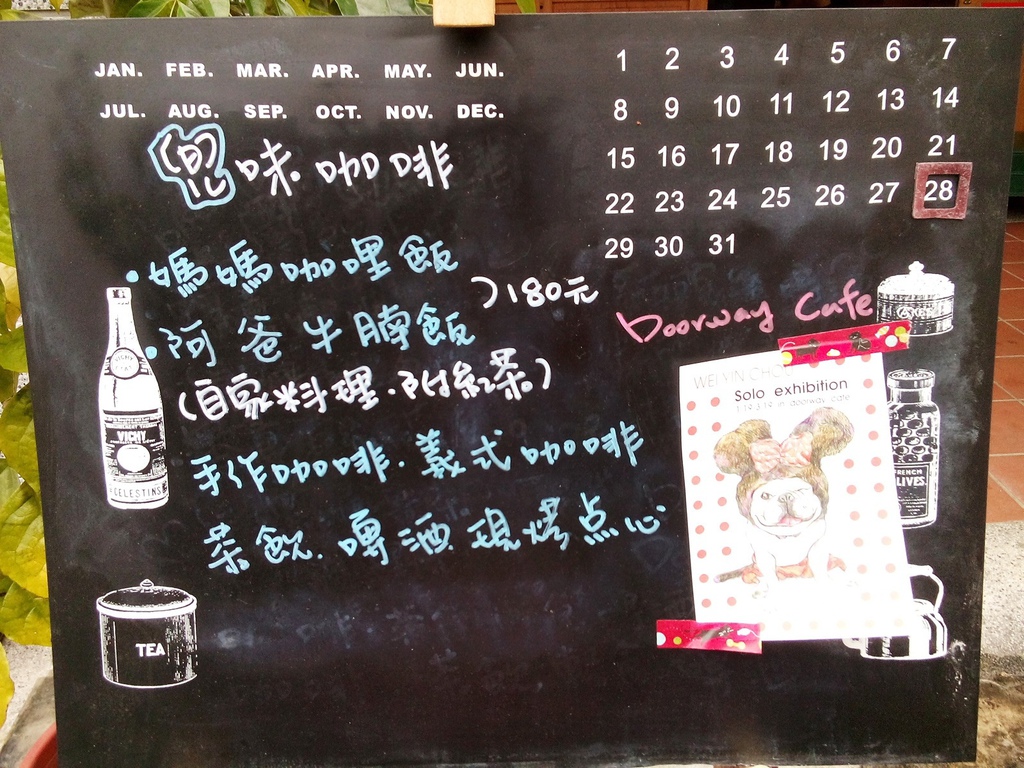 JAN. FEB. MAR. APR. MAY. JUN.
JUL. AUG. SEP. OCT. NOV. DEC.
1 2 3 4 5 6 7
8 9 10 11 12 13 14
15 16 17 18 19 20 21
22 23 24 25 26 27 28
29 30 31
味咖啡
•媽媽咖哩飯
•阿爸牛腩飯
>180元
(自家料理.附紅茶)
手作咖啡.義式咖啡
茶飲.啤酒現烤点心
Doorway Cafe
WEI YIN CHOU
Solo exhibition
in doorway cafe
VICHY
CELESTINS
TEA
FRENCH
OLIVES